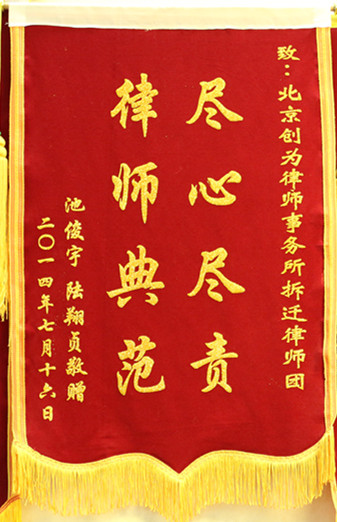 致：北京创为律师事务所拆迁律师团
尽心尽责
律师典范
池俊宇 陆翔贞敬赠
二〇一四年七月十六日